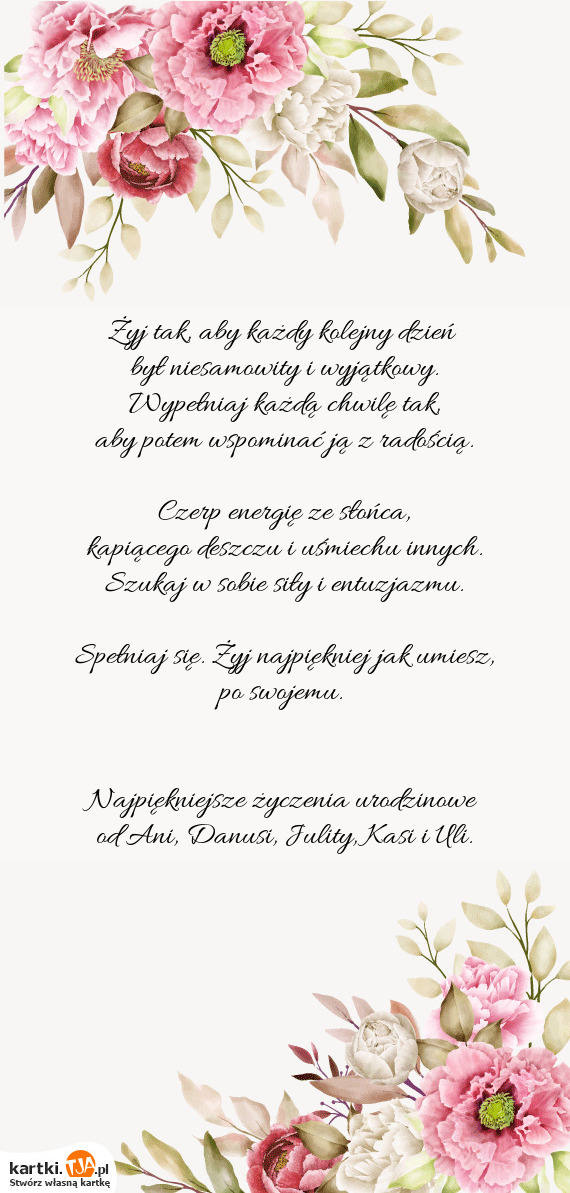 Żyj tak, aby każdy kolejny dzień
był niesamowity i wyjątkowy.
Wypełniaj każdą chwilę tak,
aby potem wspominać ją z radością.
Czerp energię ze słońca,
kapiącego deszczu i uśmiechu innych.
Szukaj w sobie siły i entuzjazmu.
Spełniaj się. Żyj najpiękniej jak umiesz,
po swojemu.
Najpiękniejsze życzenia urodzinowe
od Ani, Danusi, Julity, Kasi i Uli.
kartki.TJA.pl
Stwórz własną kartkę